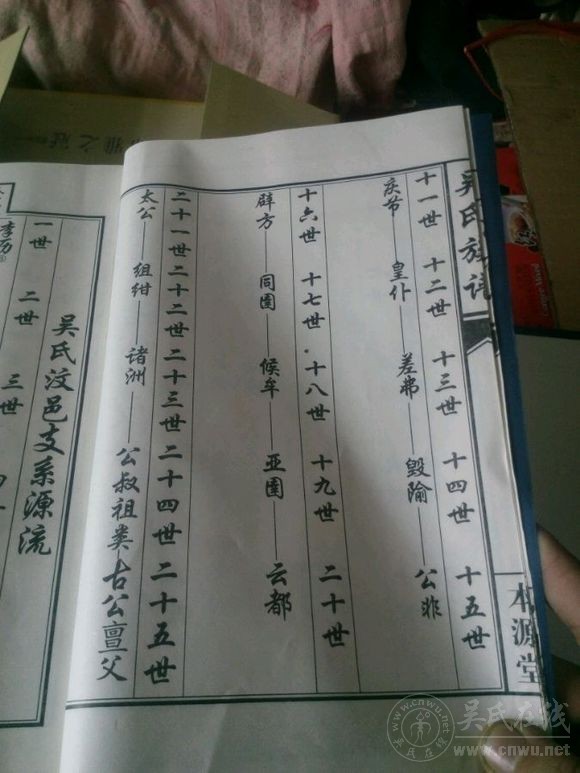 雅之冠
吴氏族谱
本源堂
十一世 十二世 十三世 十四世 十五世
庆节——皇仆——差弗——毁隃——公非
十六世 十七世 十八世 十九世 二十世
辟方——同圉——候牟——亚圉——云都
二十一世 二十二世 二十三世 二十四世 二十五世
太公——组绀——诸洲——公叔祖类 古公亶父
吴氏汶邑支系源流
一世 二世 三世
季历①
吴氏在线
www.cnwu.net